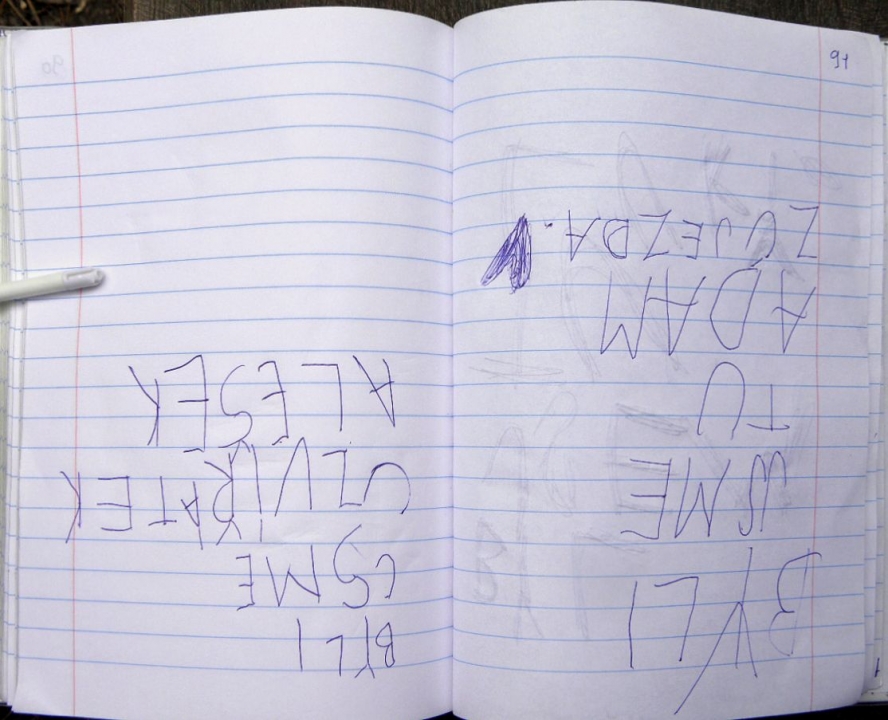 91
BYLI
JSME
TU
ADAM
Z ÚJEZDA.
BYLI
JSME
ZVIRATEK
ALESEK